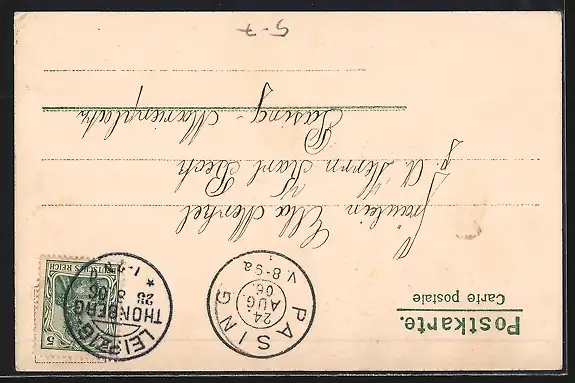 Postkarte.
Carte postale
Fräulein Ella Merkel
p. A. Herrn Karl Rech
Pasing - Marienplatz
DEUTSCHES REICH
5
LEIPZIG-THONBERG
8 06
1-2 N
PASING
24
AUG
06
V. 8-9 a
5-7